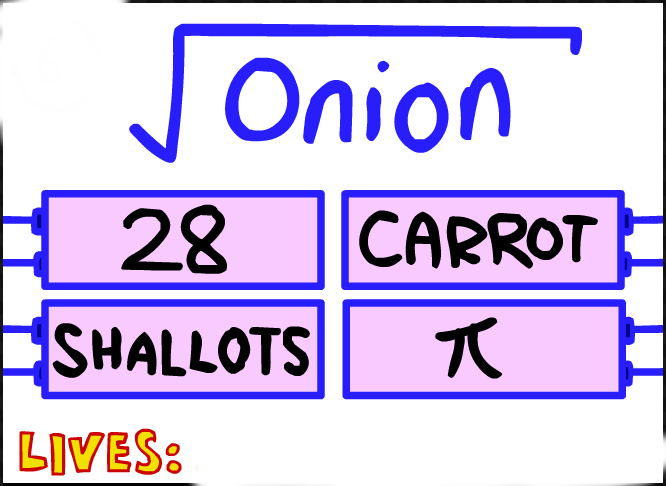 √Onion
28 CARROT
SHALLOTS π
LIVES: